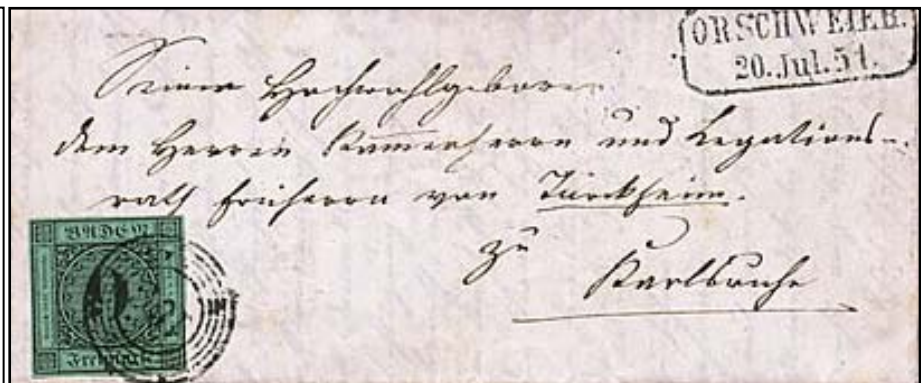 ORSCHWEIER.
20. Jul. 51.
Seiner Hochwohlgeboren
dem Herrn Kammerherrn und Legations-
rath Freiherrn von Türckheim.
zu
Karlsruhe
BADEN
9
Freimarke